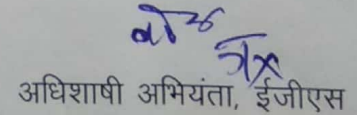 अधिशाषी अभियंता, ईजीएस